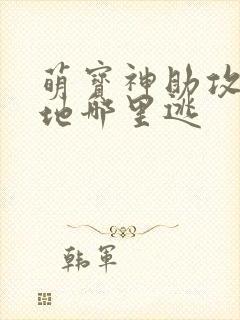 萌宝神助攻
地哪里逃
韩军